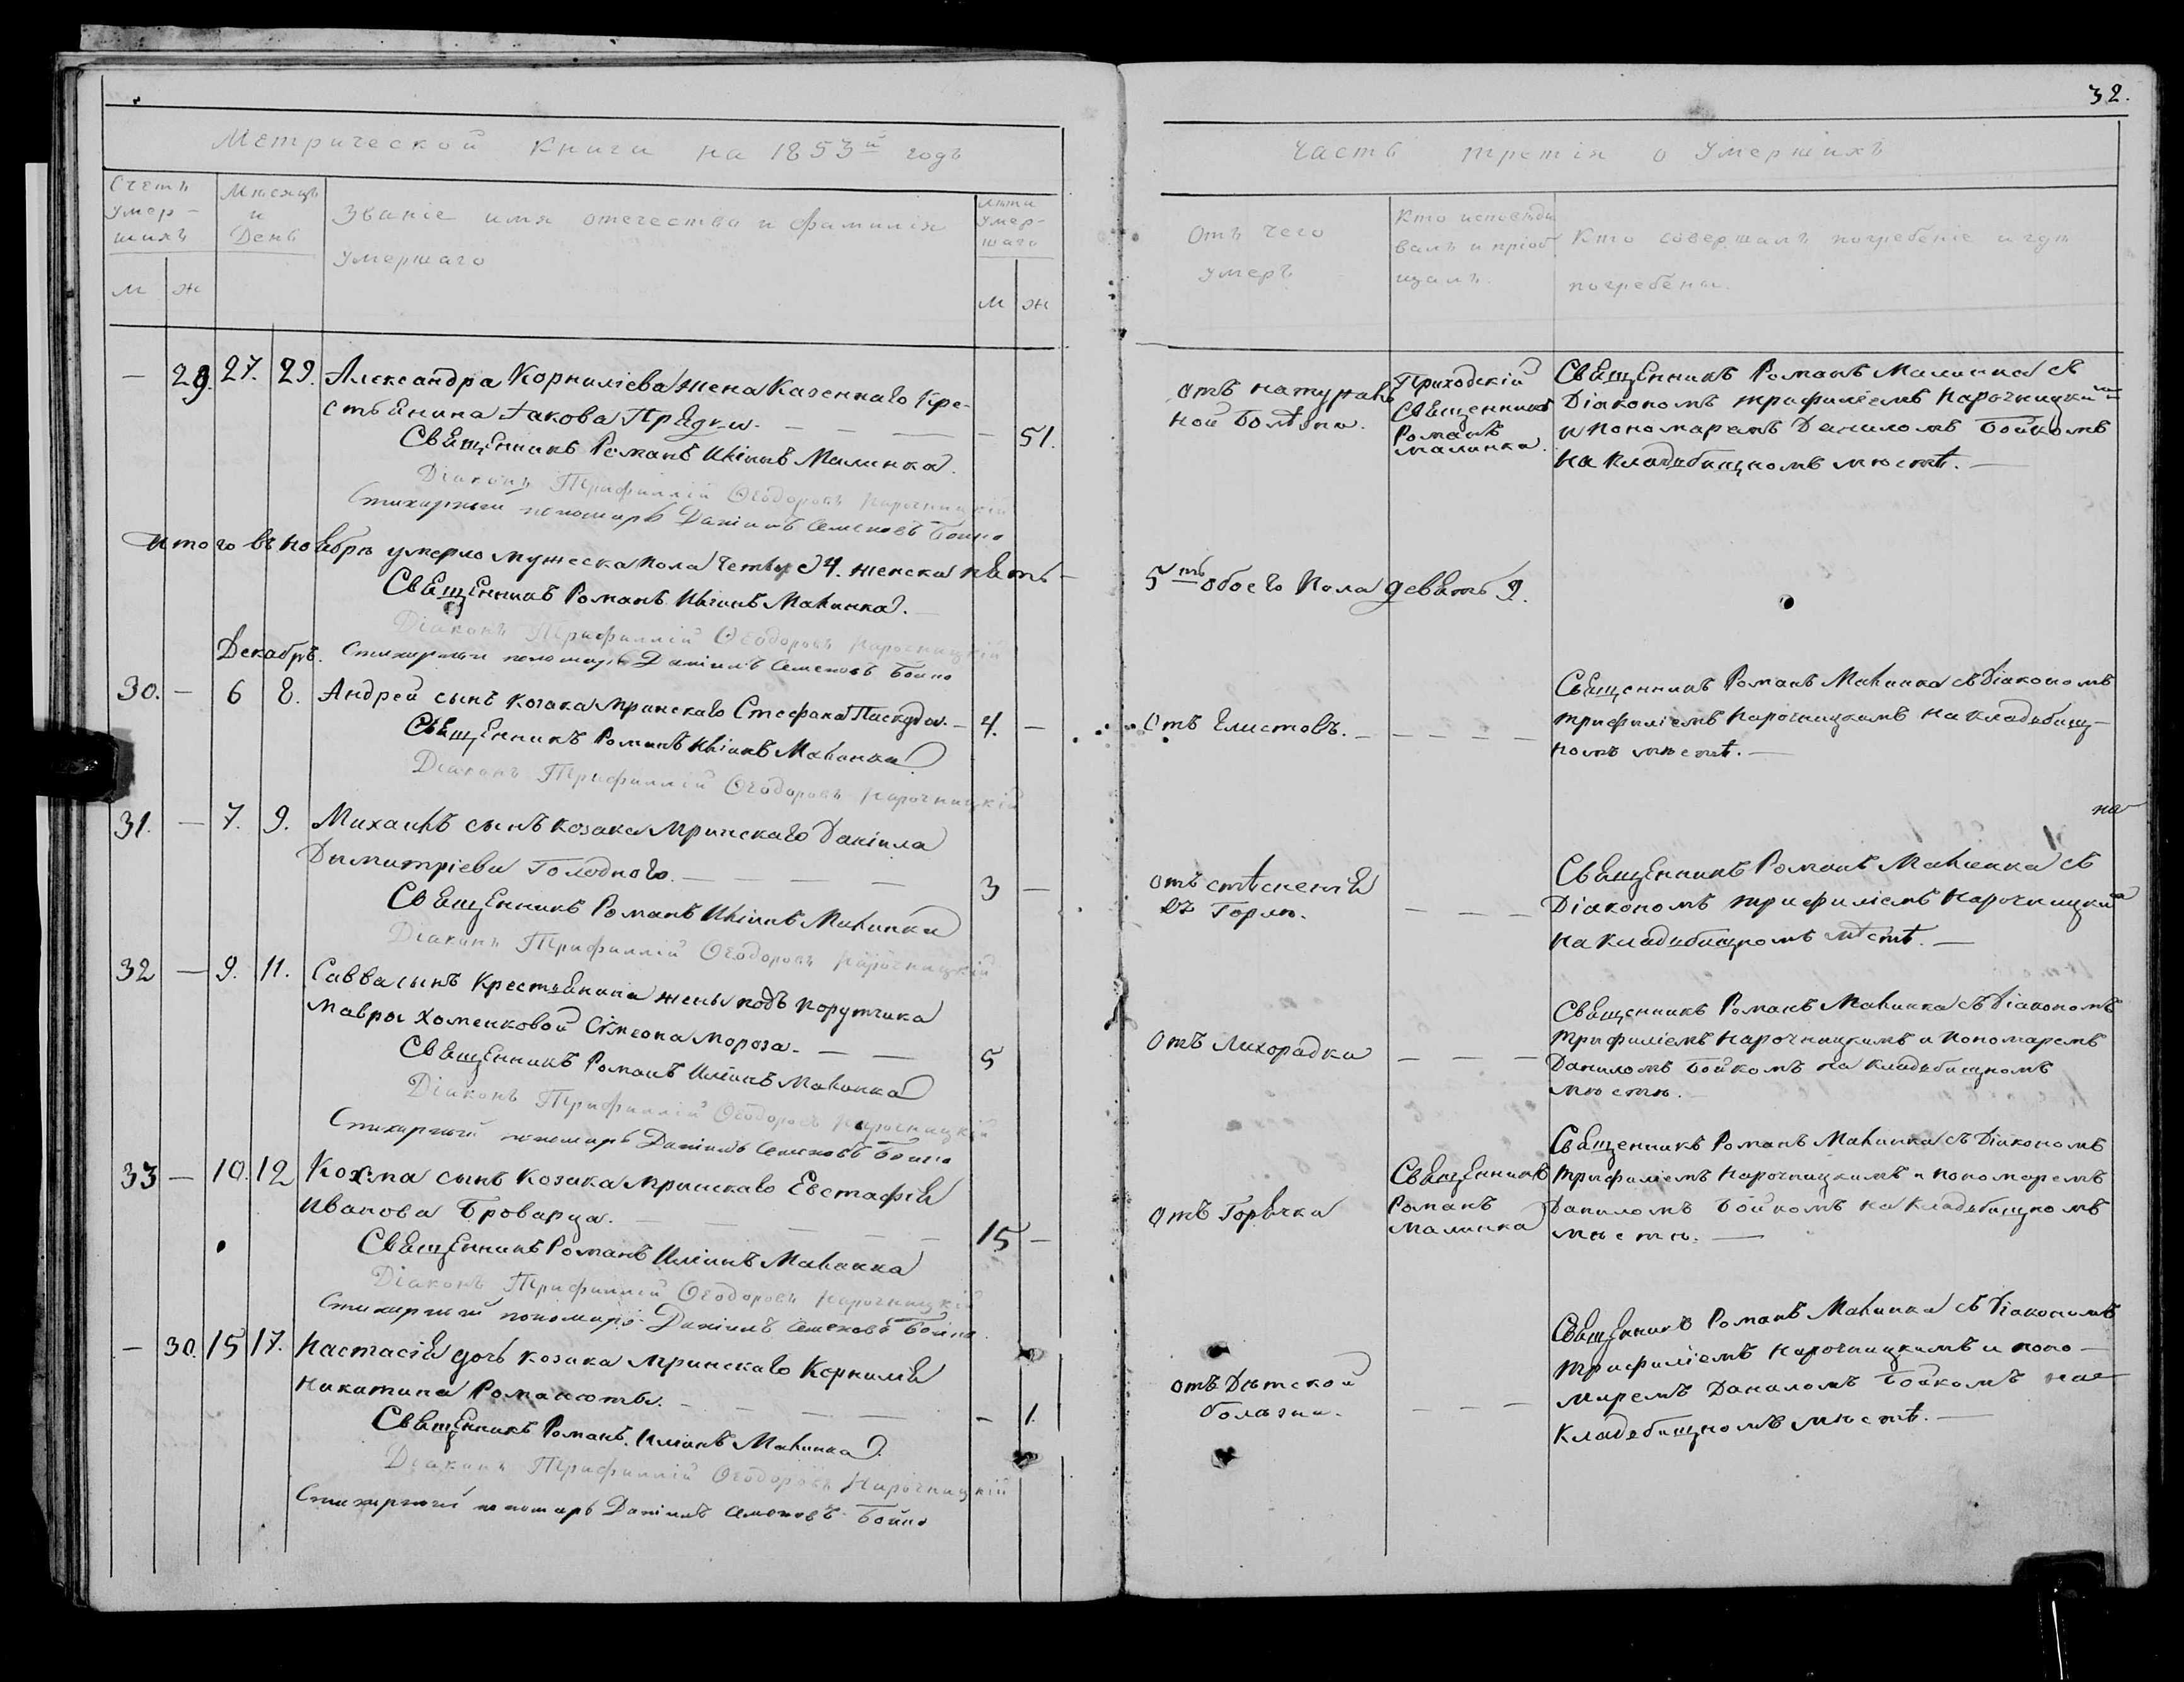 32.
Метрической книги на 1853й годъ
Часть третія о умершихъ
Счетъ умер-
шихъ
м ж
Мѣсяцъ
и
День
Званіе имя отечество и фамилія
умершаго
лѣта
умер-
шаго
м ж
Отъ чего
умеръ
Кто исповѣды
валъ и пріоб
щалъ.
Кто совершалъ погребеніе и гдѣ
погребены.
— 29. 27. 29. Александра Корниліева жена Казеннаго Кре-
стьянина Іакова Прядки. — — — — 51.
Священникъ Романъ Иліинъ Малинка.
Діаконъ Трифиллій Ѳеодоровъ Нарочницкій
Стихарный пономарь Даніилъ Семеновъ Бойко
отъ натураль
ной болѣзни.
Приходскій
Священникъ
Романъ
Малинка.
Священникъ Романъ Малинка съ
Діакономъ Трифиліемъ Нарочницкимъ
и пономаремъ Даниломъ Бойкомъ
на кладбищномъ мѣстѣ. —
Итого въ ноябрѣ умерло мужеска пола четыре 4. женска пять —
5ть обоего пола девять 9.
Священникъ Романъ Иліинъ Малинка.
Діаконъ Трифиллій Ѳеодоровъ Нарочницкій
Стихарный пономарь Даніилъ Семеновъ Бойко
Декабрь.
30. — 6 8. Андрей сынъ козака мринскаго Стефана Паскуды. — 4. —
Священникъ Романъ Иліинъ Малинка
Діаконъ Трифиллій Ѳеодоровъ Нарочницкій
Отъ Глистовъ. — — — — —
Священникъ Романъ Малинка съ Діакономъ
Трифиліемъ Нарочницкимъ на кладбищ-
номъ мѣстѣ. —
31. — 7. 9. Михаилъ сынъ козака мринскаго Даніила
Димитріева Голодного. — — — — 3 —
Священникъ Романъ Иліинъ Малинка
Діаконъ Трифиллій Ѳеодоровъ Нарочницкій
отъ стѣсненія
въ горлѣ. — — —
на
Священникъ Романъ Малинка съ
Діакономъ Трифиліемъ Нарочницкимъ
на кладбищномъ мѣстѣ. —
32 — 9. 11. Савва сынъ Крестьянина жены подъ порутчика
Мавры Хоменковой Сімеона Мороза. — — 5
Священникъ Романъ Иліинъ Малинка
Діаконъ Трифиллій Ѳеодоровъ Нарочницкій
Стихарный пономарь Даніилъ Семеновъ Бойко
Отъ Лихорадки — — —
Священникъ Романъ Малинка съ Діакономъ
Трифиліемъ Нарочницкимъ и пономаремъ
Даниломъ Бойкомъ на кладбищномъ
мѣстѣ. —
33 — 10. 12 Козма сынъ Козака мринскаго Евстафія
Иванова Броварца. — — — — 15 —
Священникъ Романъ Иліинъ Малинка
Діаконъ Трифиллій Ѳеодоровъ Нарочницкій
Стихарный пономарь Даніилъ Семеновъ Бойко.
отъ Горячки
Священникъ
Романъ
Малинка
Священникъ Романъ Малинка съ Діакономъ
Трифиліемъ Нарочницкимъ и пономаремъ
Даниломъ Бойкомъ на кладбищномъ
мѣстѣ. —
— 30. 15 17. Настасія дочь козака мринскаго Корнилія
Никитина — — — — 1.
Священникъ Романъ Иліинъ Малинка.
Діаконъ Трифиллій Ѳеодоровъ Нарочницкій
Стихарный пономарь Даніилъ Семеновъ Бойко
отъ Дѣтской
болѣзни. — — —
Священникъ Романъ Малинка съ Діакономъ
Трифиліемъ Нарочницкимъ и поно-
маремъ Даниломъ Бойкомъ на
кладбищномъ мѣстѣ. —